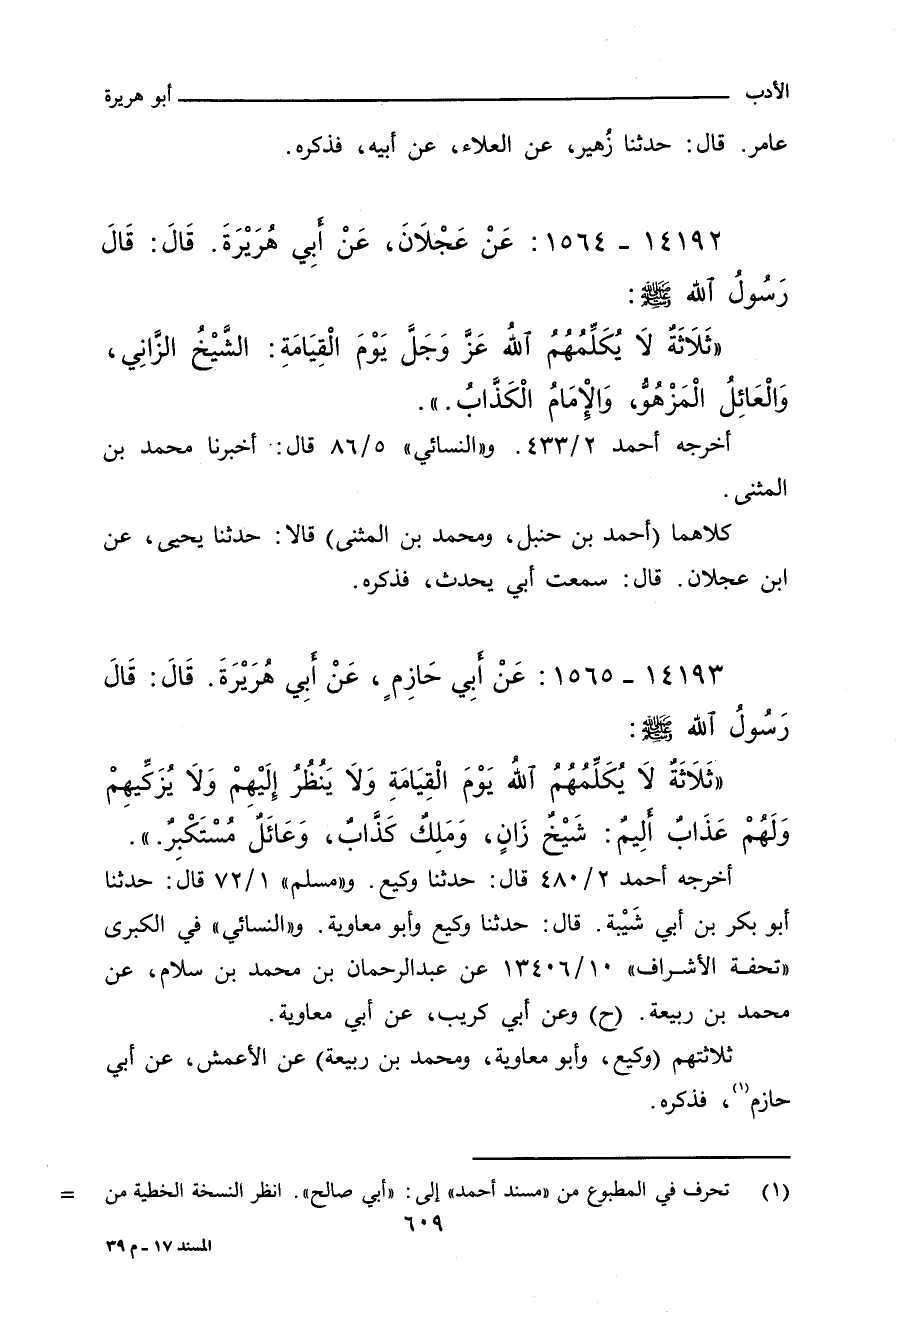 الأدب ــــــــــــــــ أبو هريرة
عامر. قال: حدثنا زُهير، عن العلاء، عن أبيه، فذكره.
١٤١٩٢ - ١٥٦٤: عَنْ عَجْلَانَ، عَنْ أَبِي هُرَيْرَةَ. قَالَ: قَالَ
رَسُولُ ٱللهِ ﷺ:
«ثَلَاثَةٌ لَا يُكَلِّمُهُمُ ٱللهُ عَزَّ وَجَلَّ يَوْمَ الْقِيَامَةِ: الشَّيْخُ الزَّانِي،
وَالْعَائِلُ الْمَزْهُوُّ، وَالْإِمَامُ الْكَذَّابُ.».
أخرجه أحمد ٤٣٣/٢. و«النسائي» ٨٦/٥ قال: أخبرنا محمد بن
المثنى.
كلاهما (أحمد بن حنبل، ومحمد بن المثنى) قالا: حدثنا يحيى، عن
ابن عجلان. قال: سمعت أبي يحدث، فذكره.
١٤١٩٣ - ١٥٦٥: عَنْ أَبِي حَازِمٍ، عَنْ أَبِي هُرَيْرَةَ. قَالَ: قَالَ
رَسُولُ ٱللهِ ﷺ:
«ثَلَاثَةٌ لَا يُكَلِّمُهُمُ ٱللهُ يَوْمَ الْقِيَامَةِ وَلَا يَنْظُرُ إِلَيْهِمْ وَلَا يُزَكِّيهِمْ
وَلَهُمْ عَذَابٌ أَلِيمٌ: شَيْخٌ زَانٍ، وَمَلِكٌ كَذَّابٌ، وَعَائِلٌ مُسْتَكْبِرٌ.».
أخرجه أحمد ٤٨٠/٢ قال: حدثنا وكيع. و«مسلم» ٧٢/١ قال: حدثنا
أبو بكر بن أبي شَيْبة. قال: حدثنا وكيع وأبو معاوية. و«النسائي» في الكبرى
«تحفة الأشراف» ١٣٤٠٦/١٠ عن عبدالرحمان بن محمد بن سلام، عن
محمد بن ربيعة. (ح) وعن أبي كريب، عن أبي معاوية.
ثلاثتهم (وكيع، وأبو معاوية، ومحمد بن ربيعة) عن الأعمش، عن أبي
حازم(١)، فذكره.
(١) تحرف في المطبوع من «مسند أحمد» إلى: «أبي صالح». انظر النسخة الخطية من =
٦٠٩
المسند ١٧ - م ٣٩